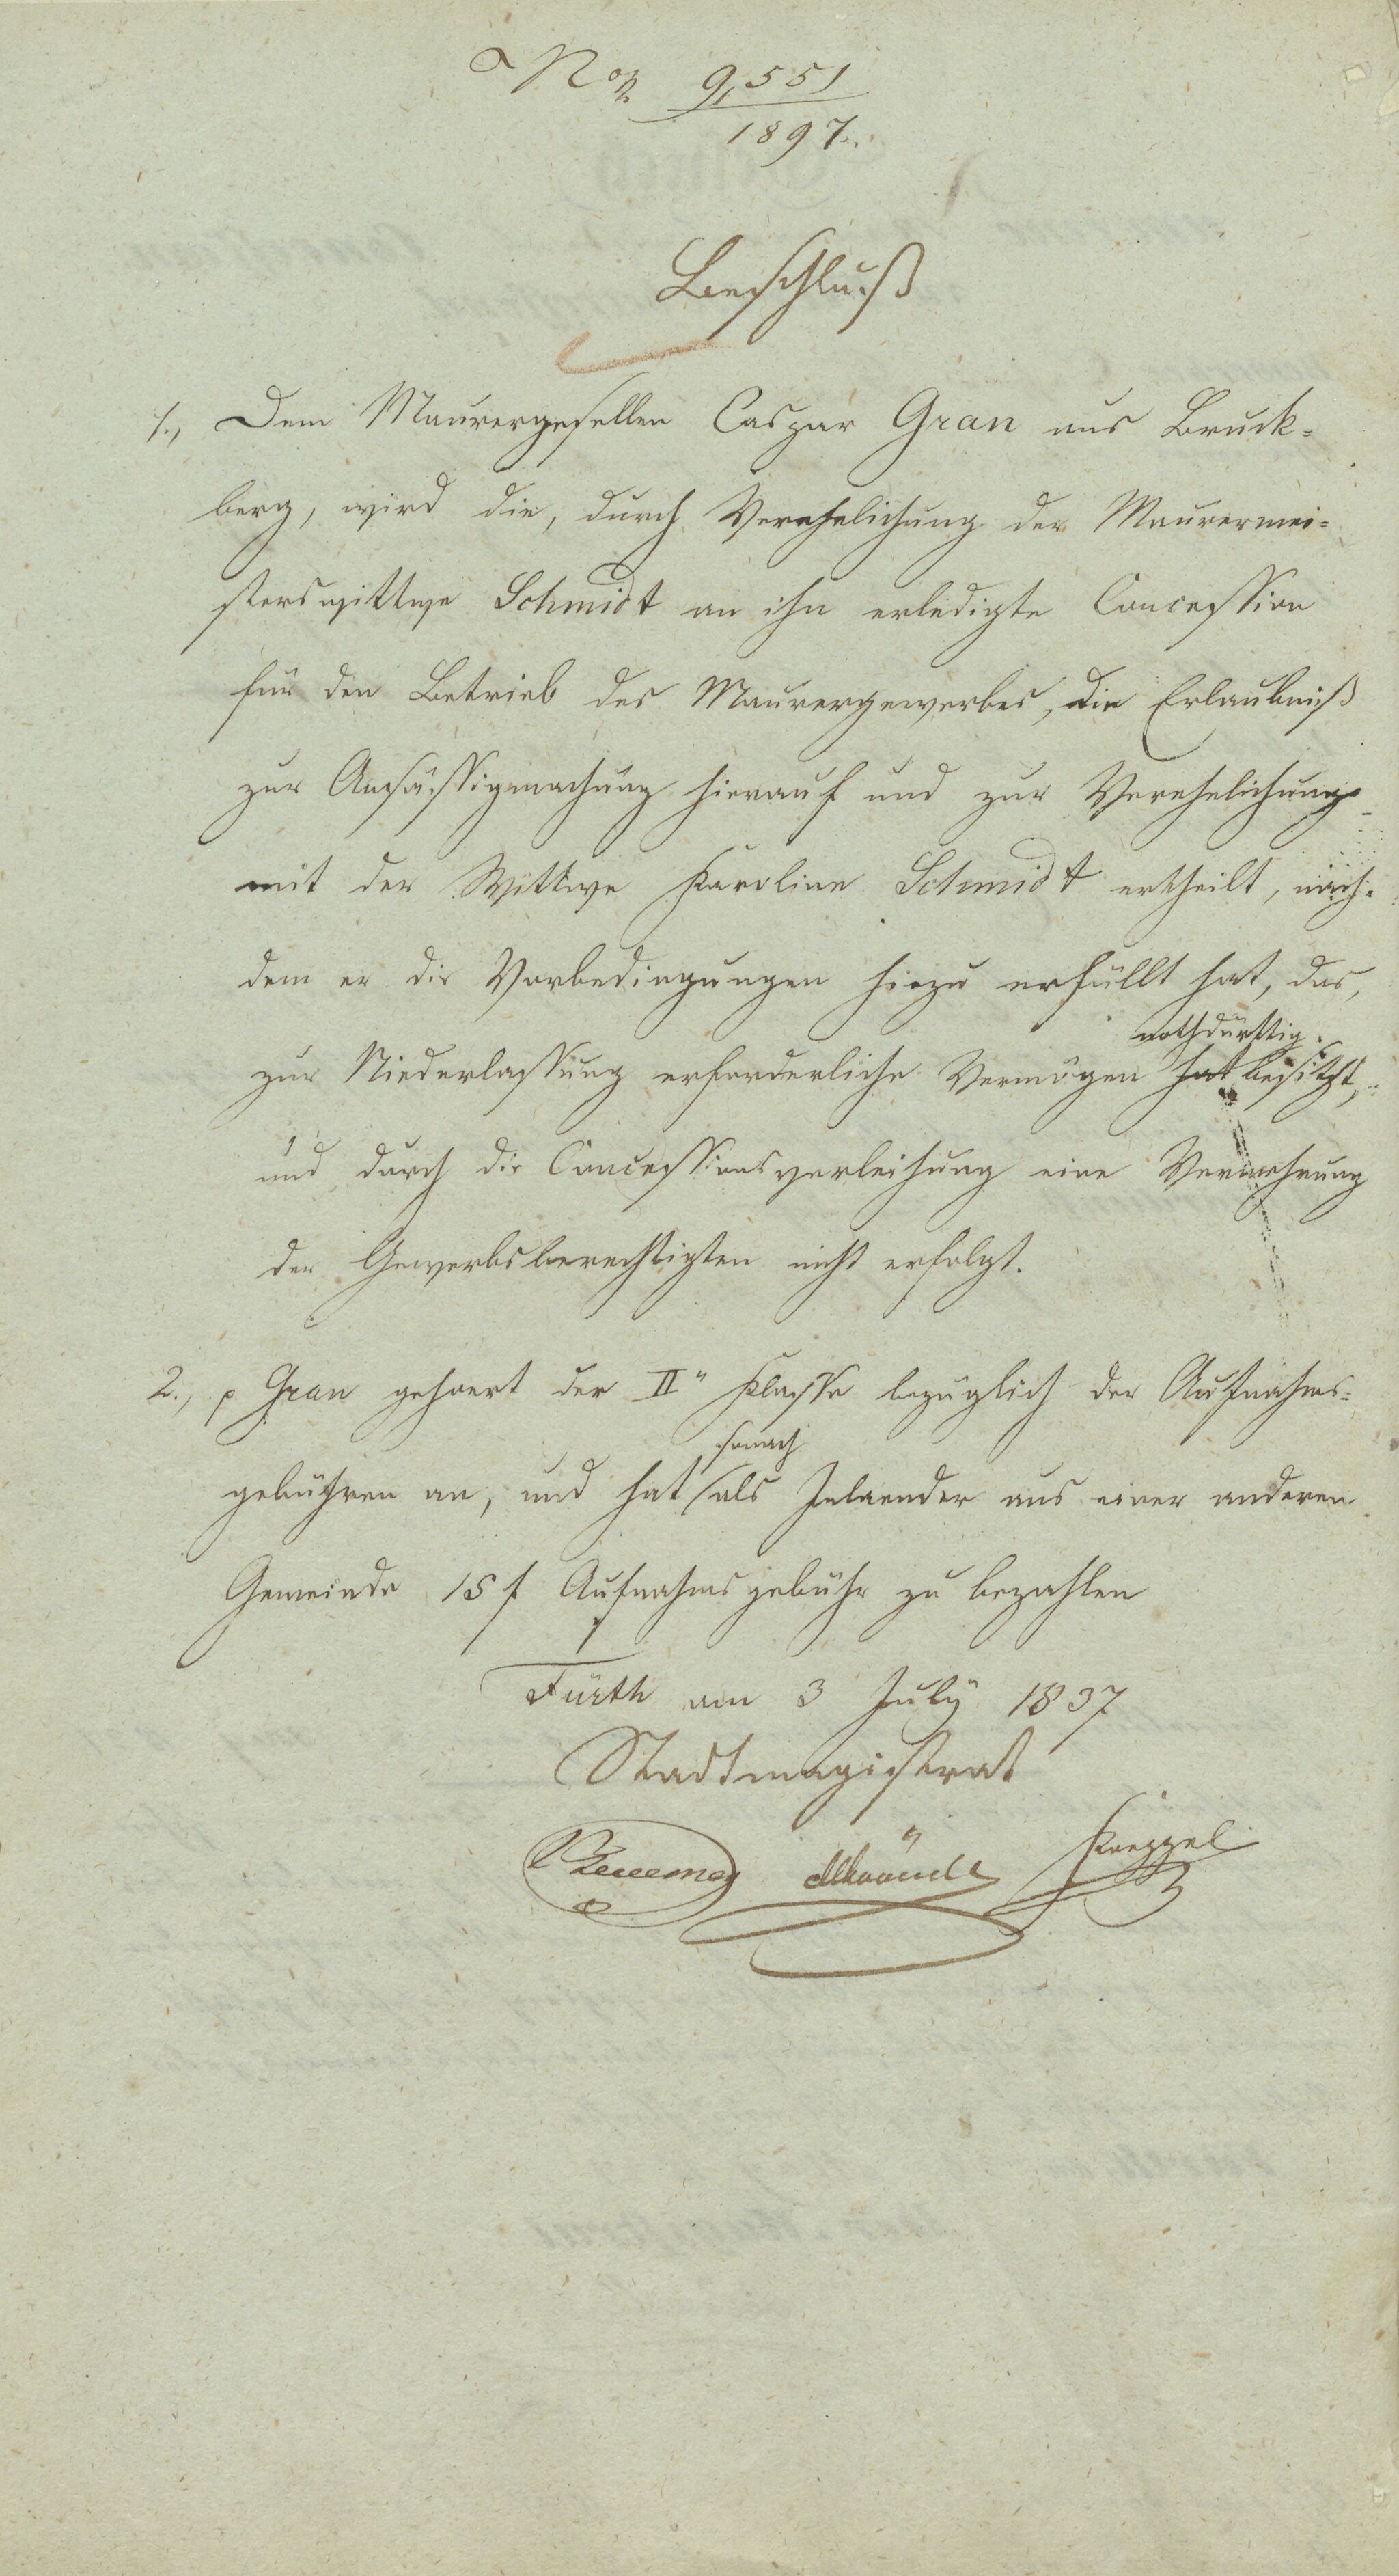 No 9,551
1897.
Beschluß
1., Dem Maurergesellen Caspar Gran aus Bruck-
berg, wird die, durch Verehelichung der Maurermei-
sterswittwe Schmidt an ihn erledigte Concession
für den Betrieb des Maurergewerbes, die Erlaubniß
zur Ansäßigmachung hierauf und zur Verehelichung
mit der Wittwe Karoline Schmidt ertheilt, nach-
dem er die Vorbedingungen hiezu erfüllt hat, das,
nothdürftig
zur Niederlassung erforderliche Vermögen hat besitzt,
und durch die Concessionsverleihung eine Vermehrung
der Gewerbsberechtigten nicht erfolgt.
2., p Gran gehoert der II" Klasse bezüglich der Aufnahms-
sonach
gebühren an, und hat als Inlaender aus einer anderen
Gemeinde 15 f Aufnahmsgebühr zu bezahlen
Fürth am 3 July 1837
Stadtmagistrat